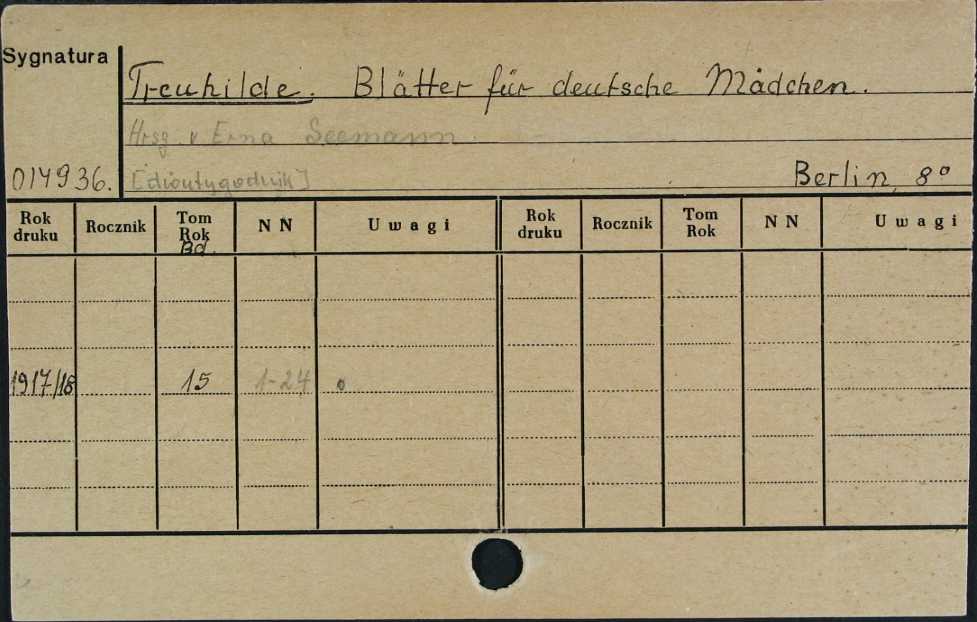 Sygnatura
Treuhilde. Blätter für deutsche Mädchen.
Hrsg. v. Erna Seemann.
014936. [dwutygodnik] Berlin, 8°
Rok druku Rocznik Tom Rok Bd. NN Uwagi Rok druku Rocznik Tom Rok NN Uwagi
1917/18 15 1-24